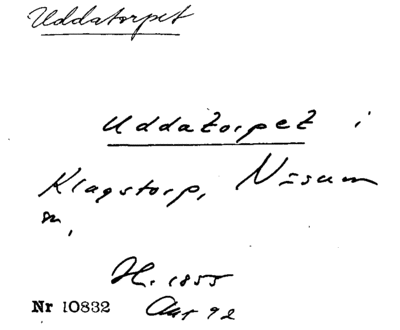 Uddatorpet
Uddatorpet i
Klagstorp, Näsum
sn,
Hl. 1855
Nr 10832 Akt 92